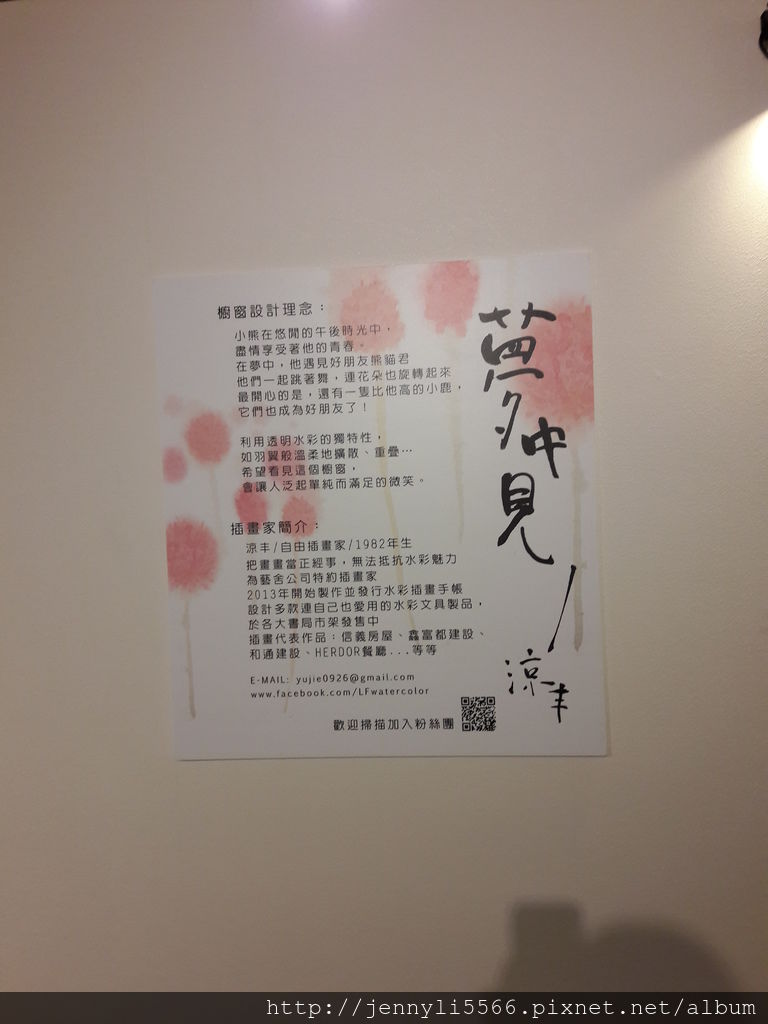 夢中見
涼丰
櫥窗設計理念：
小熊在悠閒的午後時光中，
盡情享受著他的青春。
在夢中，他遇見好朋友熊貓君
他們一起跳著舞，連花朵也旋轉起來
最開心的是，還有一隻比他高的小鹿，
它們也成為好朋友了！
利用透明水彩的獨特性，
如羽翼般溫柔地擴散、重疊…
希望看見這個櫥窗，
會讓人泛起單純而滿足的微笑。
插畫家簡介：
涼丰/自由插畫家/1982年生
把畫畫當正經事，無法抵抗水彩魅力
為藝舍公司特約插畫家
2013年開始製作並發行水彩插畫手帳
設計多款連自己也愛用的水彩文具製品，
於各大書局市架發售中
插畫代表作品：信義房屋、鑫富都建設、
和通建設、HERDOR餐廳...等等
E-MAIL: yujie0926@gmail.com
www.facebook.com/LFwatercolor
歡迎掃描加入粉絲團
http://jennyli5566.pixnet.net/album